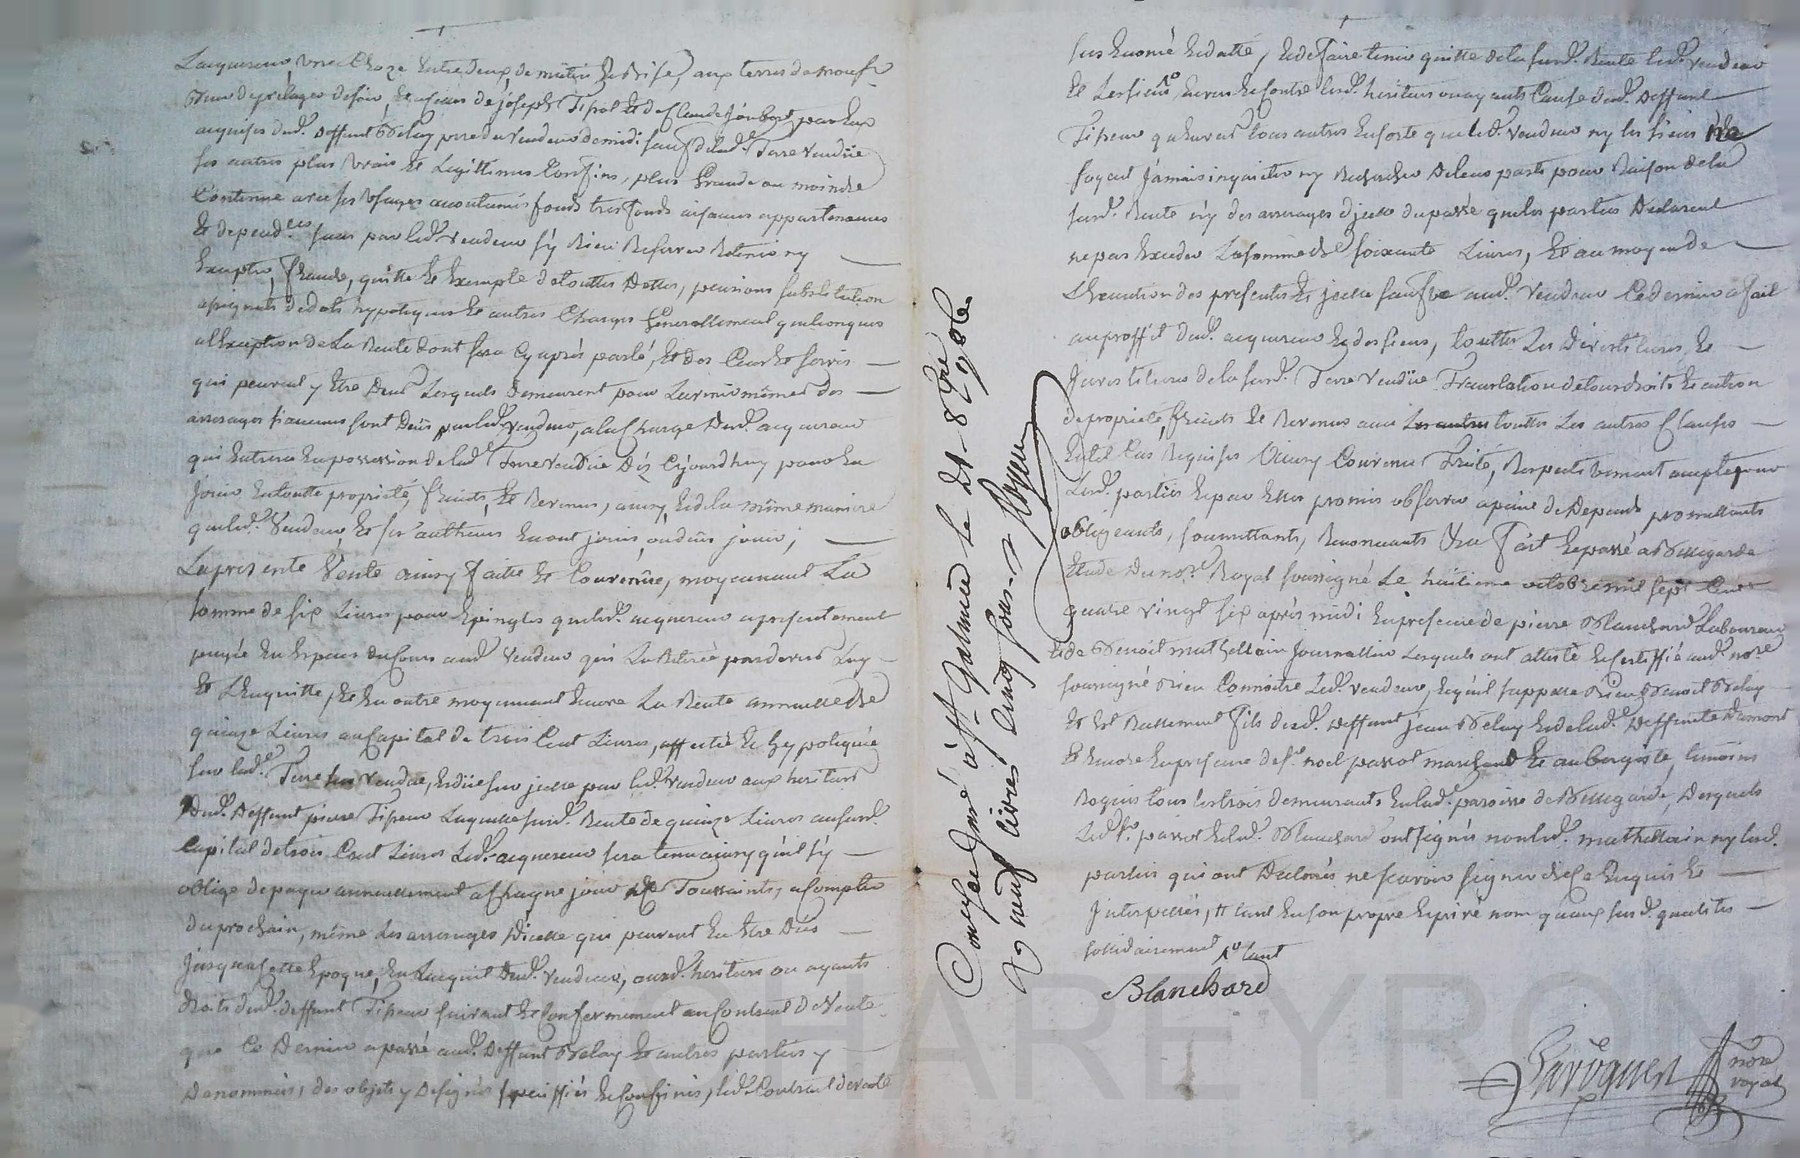 Lacquereur une Choze Entre deux, de matin et bize, aux terres de
acquises dud. deffunt Belay pere du vendeur de midi, sauf de lad. Terre Vendüe
ses autres plus vrais et Legittimes Confins, plus Grande ou moindre
Contenue avec ses usages accoutumés fonds tresfonds aisances appartenances
et depend.ces sans par led. Vendeur s'y Rien Reserver Retenir ny
Excepter, franche, quitte et Exempte de touttes Dettes, pensions substitution
apegnats de dots hypoteques et autres Charges Generallement quelconques
a l'Exception de La Rente dont sera Cy après parlé, et des Cens et servis
qui peuvent y Etre deus Lesquels demeurent pour L'avenir mêmes des
arrerages si aucuns sont Deüs par led. Vendeur, a la Charge Dud. acquereur
qui Entrera En possession de lad. Terre Vendüe Dès Cejourdhuy pour En
Jouir En toutte propriété, fruits, et Revenus, ainsy, et de la même maniere
que led. Vendeur et ses autheurs En ont joüis, ou deüs jouir,
La presente Vente ainsy faitte et Convenüe, moyennant La
somme de six Livres pour Epingles que led. acquereur a presentement
payée En Espaces de Cours aud. Vendeur qui La Retirée pardevers Luy
et L'En quitte, et En outre moyennant Encore La Rente annuelle de
quinze Livres au Capital de trois Cent Livres, affectée et hypotequée
sur lad. Terre Vendue, et düe sur jcelle par led. Vendeur aux heritiers
Dud. Deffunt pierre Tiseur Laquelle susd. Rente de quinze Livres au susd.
Capital de trois Cent Livres Led. acquereur sera tenu ainsy qu'il s'y
oblige de payer annuellement a Chaque jour de Toussaints, a Compter
du prochain, même Les arrerages d'icelle qui peuvent En Etre Düs
Jusqua Cette Epoque, En L'acquit Dud. Vendeur, auxd. heritiers ou ayants
droits dud. deffunt Tiseur suivant et Conformement au Contract de Vente
que Ce Dernier a passé aud. Deffunt Belay et autres parties y
Denommées, des objets y Designés specifiés et Confinés, led. Contract de vente
sus Enoncé et datté, et de faire tenir quitte de la susd. Rente led. Vendeur
et Les siens Envers et Contre lesd. heritiers ou ayants Cause dud. Deffunt
Tiseur qu'Envers tous autres En sorte que led. Vendeur ny les siens ne
soyent Jamais inquietés ny Recherchés de leurs parts pour Raison de la
susd. Rente n'y des arrerages d'jcelle du passé que les parties Declarent
ne pas Exceder La somme de soixante Livres, et au moyen de
L'Execution des presentes et jcelle sauf aud. Vendeur Ce dernier a fait
au proffit dud. acquereur et des siens, touttes Les Devestitures et
Jnvestitures de la susd. Terre Vendüe Translation de tous droits et action
de propriété, fruits et Revenus avec Les autres touttes Les autres Clauses
En tel Cas Requises Ainsy Convenu Traité, Respectivement accepté par
Lesd. parties et par Elles promis observer a peine de Depends promettants
obligeants, soumettants, Renonceants &a Fait et passé a Bellegarde
Etude Du no.re Royal soussigné Le huitieme octobre mil sept Cent
quatre vingt six après midi En presence de pierre Blanchard Laboureur
et de Benoit Mathellain Journallier Lesquels ont attesté et Certiffié aud. no.re
soussigné Bien Connoitre Led. vendeur, et qu'il s'appelle Bien Benoit Belay
et Est Reellement fils desd. deffunt jean Belay et de lad. Deffunte Dumont
et Encore En presence de s.r noel passot marchand et aubergiste, temoins
Requis tous Les trois demeurants En lad. paroisse de Bellegarde Desquels
Led. s.r passot et led. Blanchard ont signés non led. Mathellain ny lesd.
parties qui ont Declarés ne sçavoir signer de ce Enquis et
Jnterpellés, tant En son propre et privé nom qu'aux susd. qualités
sollidairement
Blanchard
nore
royal
Controllé à St. Galmier le 21 8bre 1786
neuf livres cinq sous